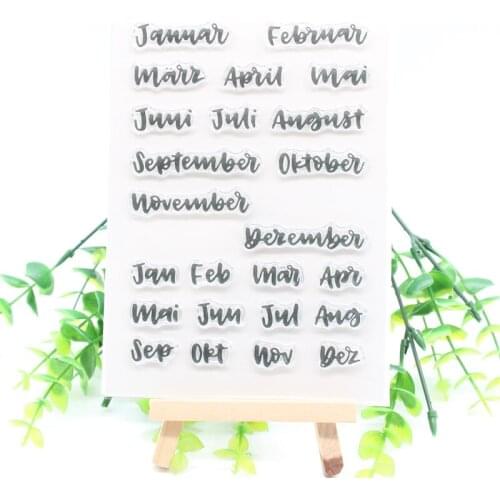 Januar Februar
März April Mai
Juni Juli August
September Oktober
November
Dezember
Jan Feb Mär Apr
Mai Jun Jul Aug
Sep Okt Nov Dez